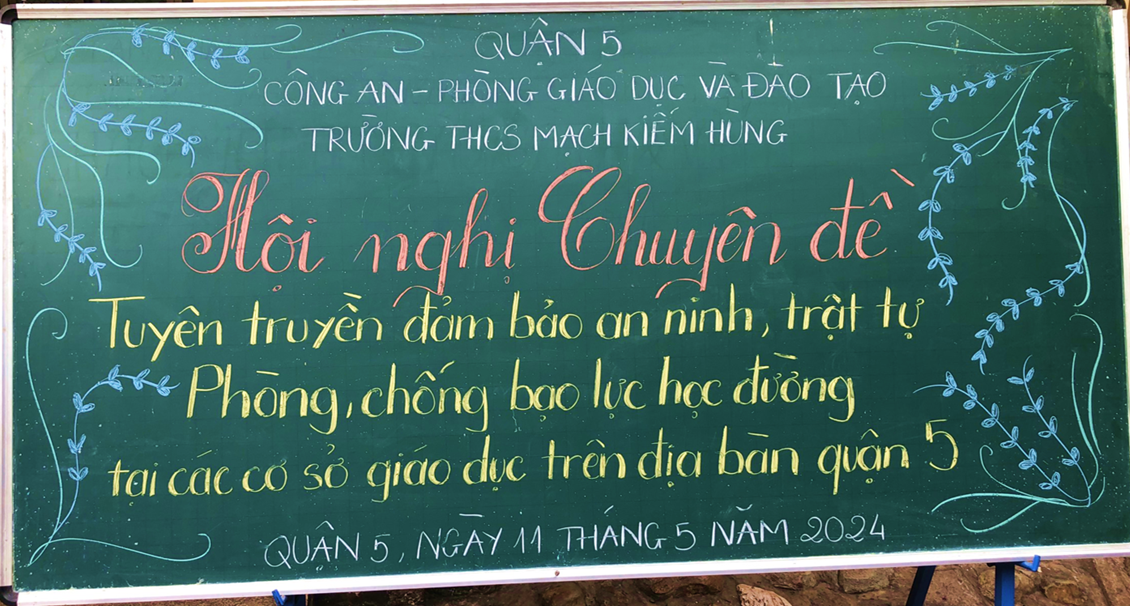 QUẬN 5
CÔNG AN - PHÒNG GIÁO DỤC VÀ ĐÀO TẠO
TRƯỜNG THCS MẠCH KIẾM HÙNG
Hội nghị Chuyên đề
Tuyên truyền đảm bảo an ninh, trật tự
Phòng, chống bạo lực học đường
tại các cơ sở giáo dục trên địa bàn quận 5
QUẬN 5, NGÀY 11 THÁNG 5 NĂM 2024